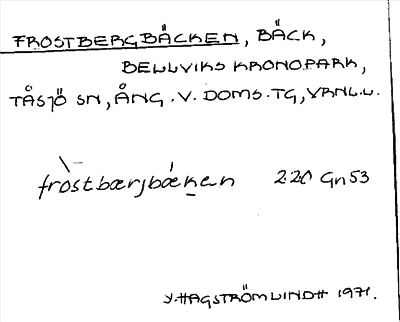 FROSTBERGBÄCKEN, BÄCK,
BELLVIKS KRONOPARK,
TÅSJÖ SN, ÅNG. V. DOMS. TG, VRNL.L.
fròstbærjbǽken 220 Gn53
Y. HAGSTRÖM LINDH 1971.